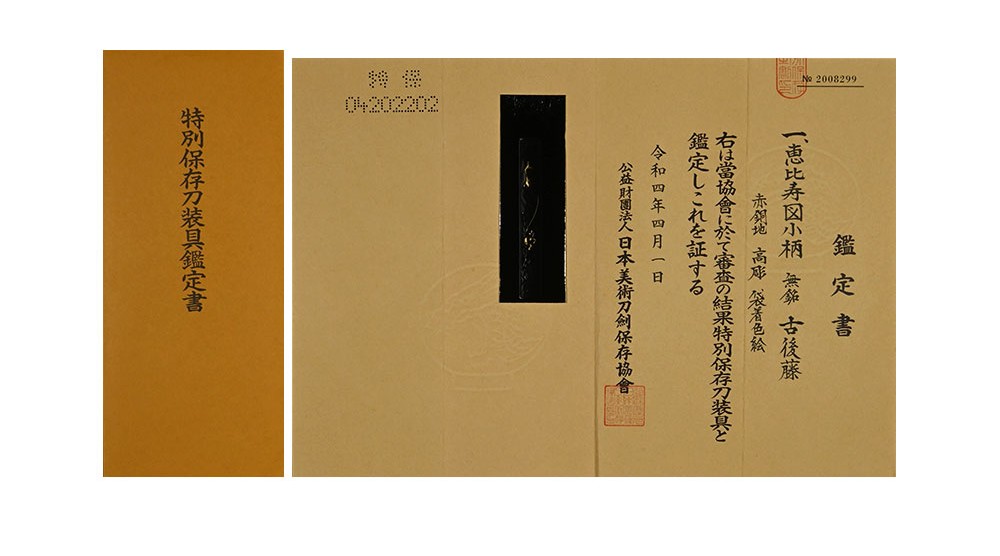 特別保存刀装具鑑定書
特保
04202202
№ 2008299
鑑定書
一、恵比寿図小柄 無銘 古後藤
赤銅地 高彫 袋着色絵
右は當協會に於て審査の結果特別保存刀装具と
鑑定しこれを証する
令和四年四月一日
公益財團法人日本美術刀劍保存協會